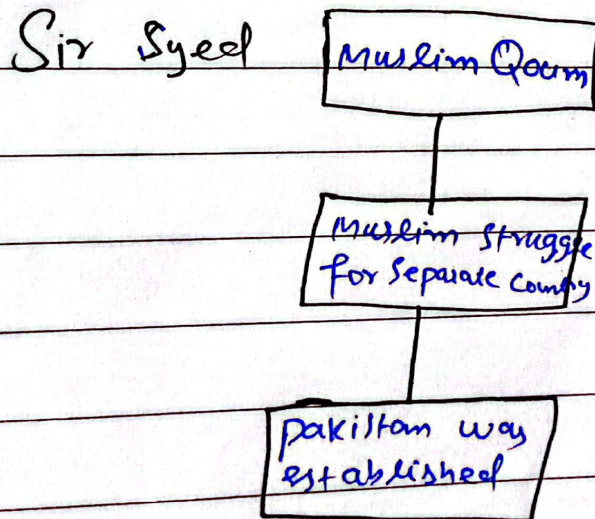 Sir Syed
Muslim Qoum
Muslim Struggle
for Separate Country
Pakistan was
established